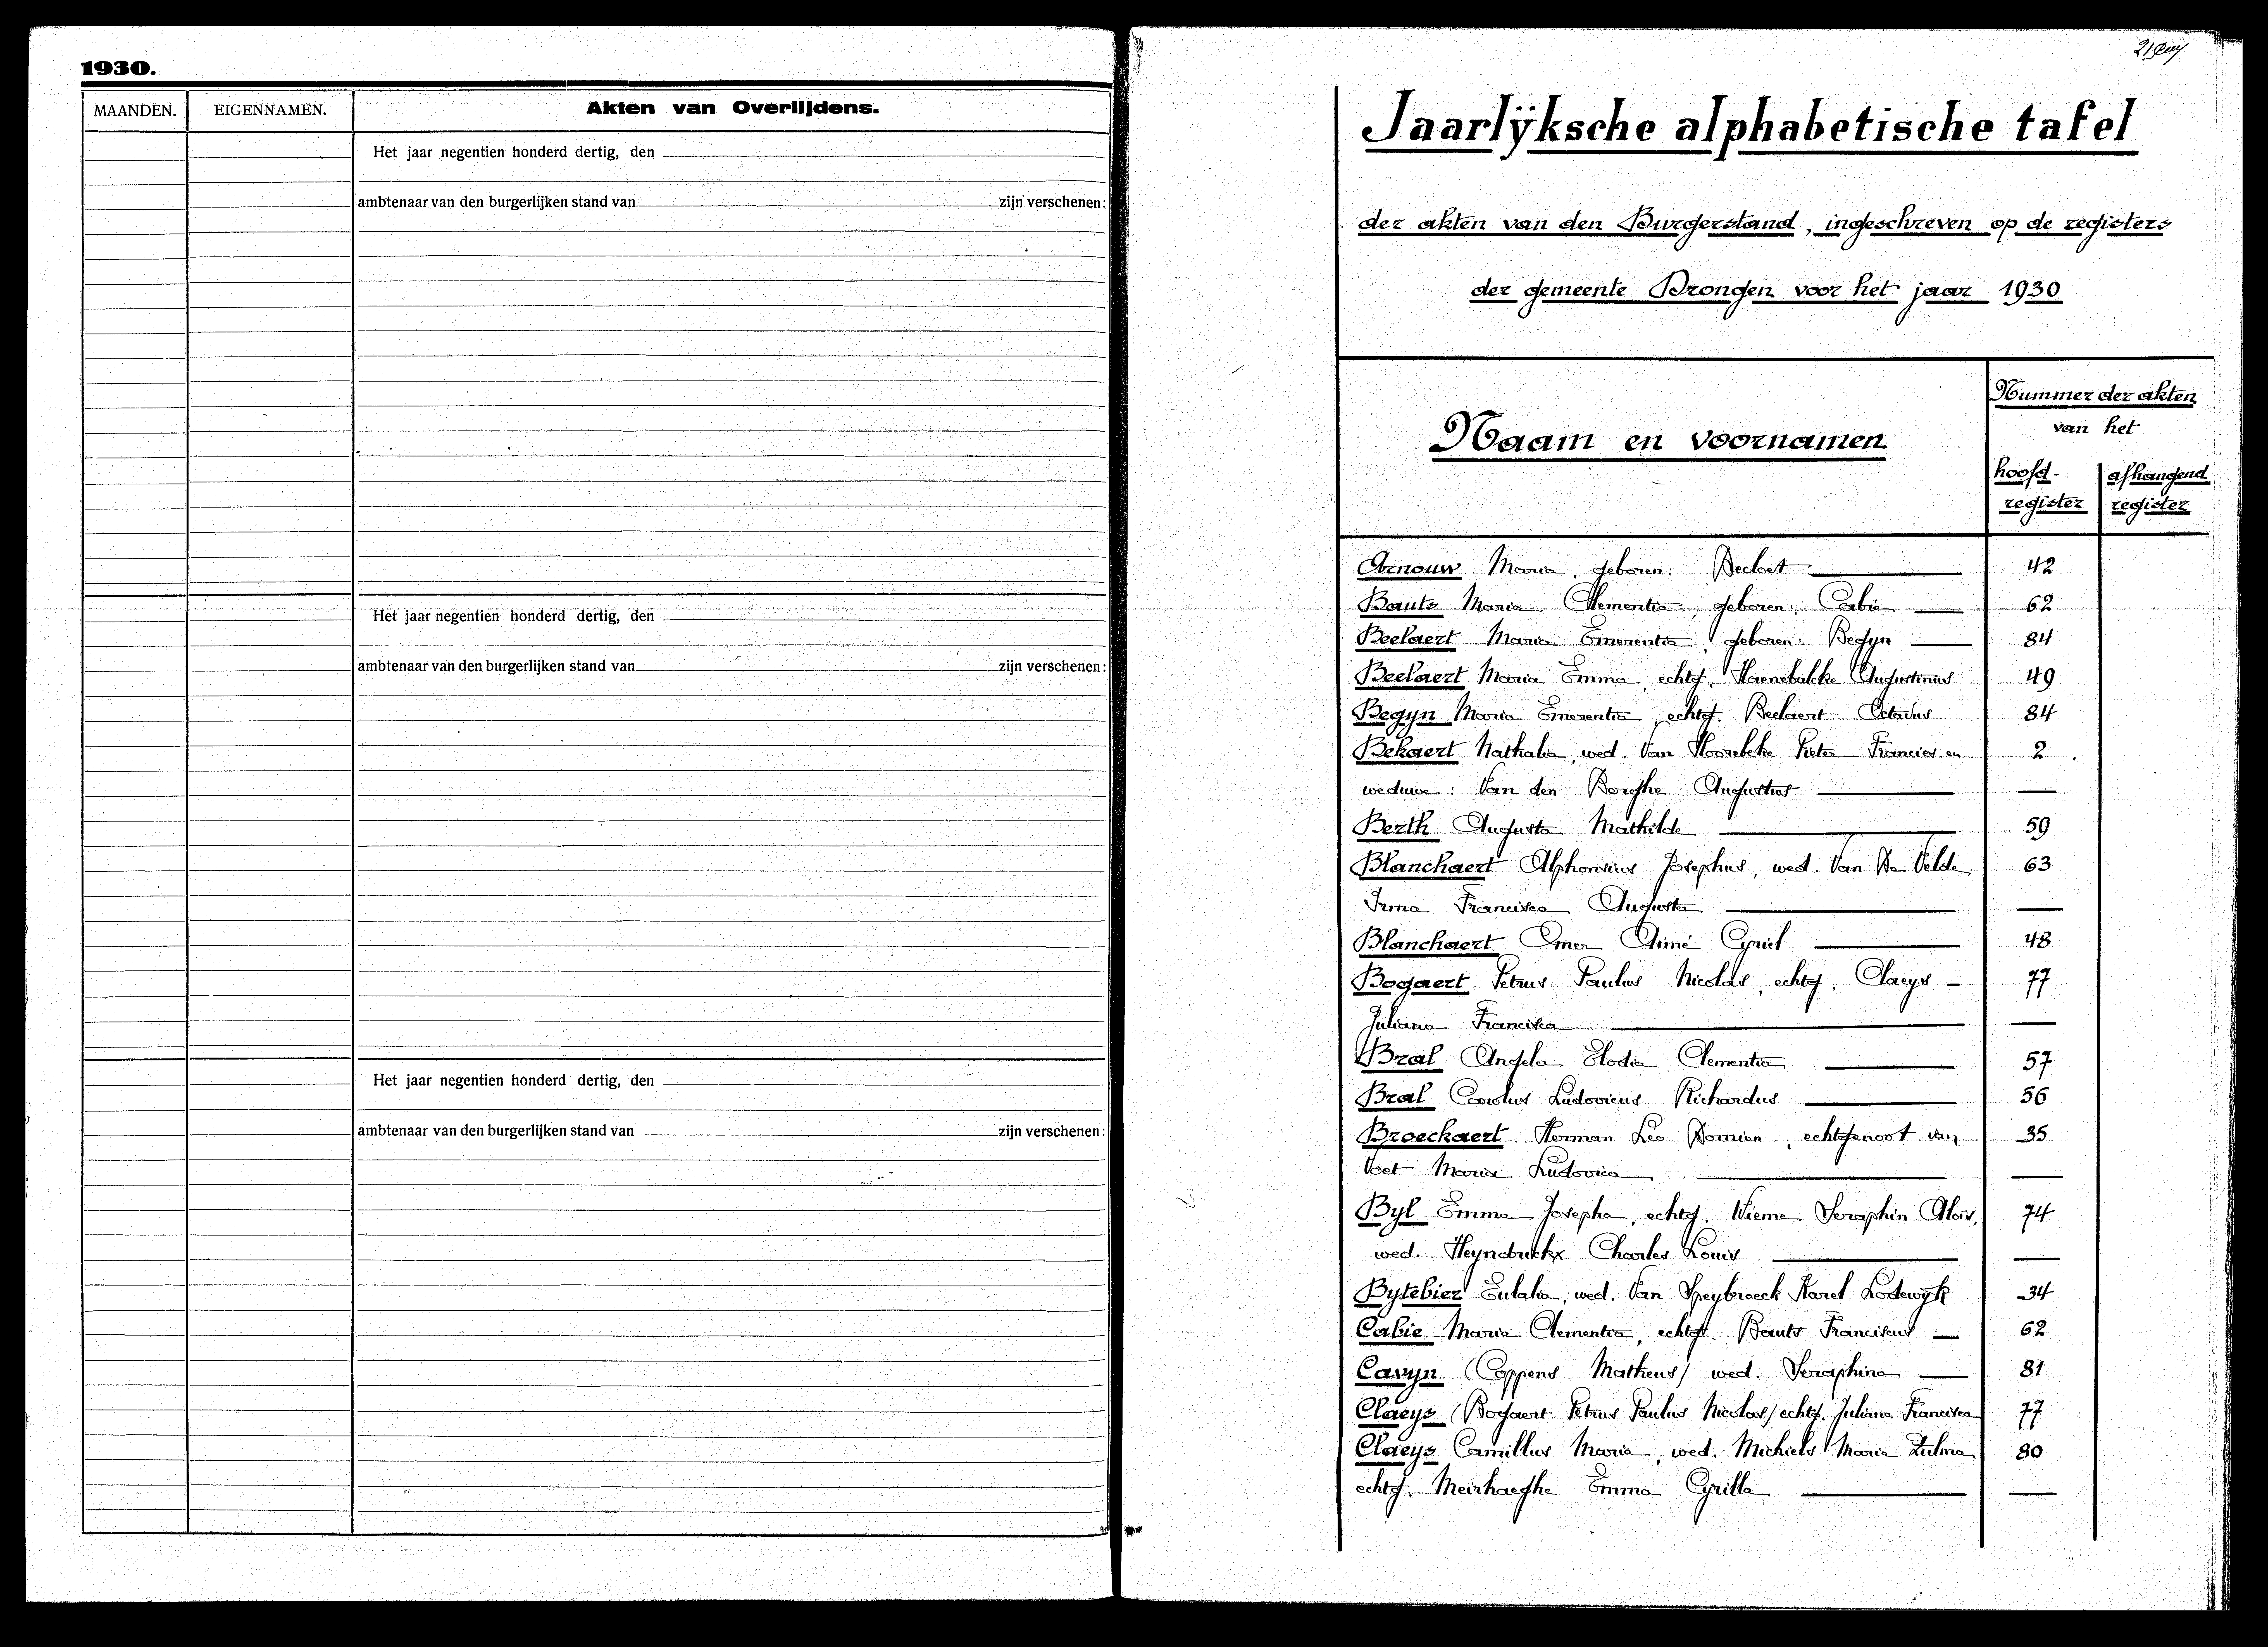 1930.
MAANDEN. EIGENNAMEN. Akten van Overlijdens.
Het jaar negentien honderd dertig, den
ambtenaar van den burgerlijken stand van zijn verschenen:
Het jaar negentien honderd dertig, den
ambtenaar van den burgerlijken stand van zijn verschenen:
Het jaar negentien honderd dertig, den
ambtenaar van den burgerlijken stand van zijn verschenen:
Jaarlÿksche alphabetische tafel
der akten van den Burgerstand, ingeschreven op de registers
der gemeente Drongen voor het jaar 1930
Naam en voornamen
Nummer der akten
van het
hoofd- afhangend
register register
Arnouw Maria, geboren: Decloet 42
Bauts Maria Clementia, geboren: Cabie 62
Beelaert Maria Emerentia, geboren: Begyn 84
Beelaert Maria Emma, echtg. Haenebalcke Augustinus 49
Begyn Maria Emerentia, echtg. Beelaert Octavus 84
Bekaert Nathalia, wed. Van Hoorebeke Pieter Francies en 2
weduwe: Van den Berghe Augustus —
Berth Augusta Mathilde 59
Blanchaert Alphonsius Josephus, wed. Van De Velde 63
Irma Francisca Augusta —
Blanchaert Omer Aimé Cyriel 48
Bogaert Petrus Paulus Nicolas, echtg. Claeys — 77
Juliana Francisca —
Bral Angela Elodia Clementia 57
Bral Carolus Ludovicus Richardus 56
Broeckaert Herman Leo Domien, echtgenoot van 35
Voet Maria Ludovica —
Byl Emma Josepha, echtg. Wieme Seraphin Aloïs, 74
wed. Heyndrickx Charles Louis —
Bytebier Eulalia, wed. Van Speybroeck Karel Lodewÿk 34
Cabie Maria Clementia, echtg. Bauts Franciscus — 62
Cavyn (Coppens Matheus) wed. Seraphina 81
Claeys (Bogaert Petrus Paulus Nicolas) echtg. Juliana Francisca 77
Claeys Camillus Maria, wed. Michiels Maria Zulma 80
echtg. Meirhaeghe Emma Cyrilla —